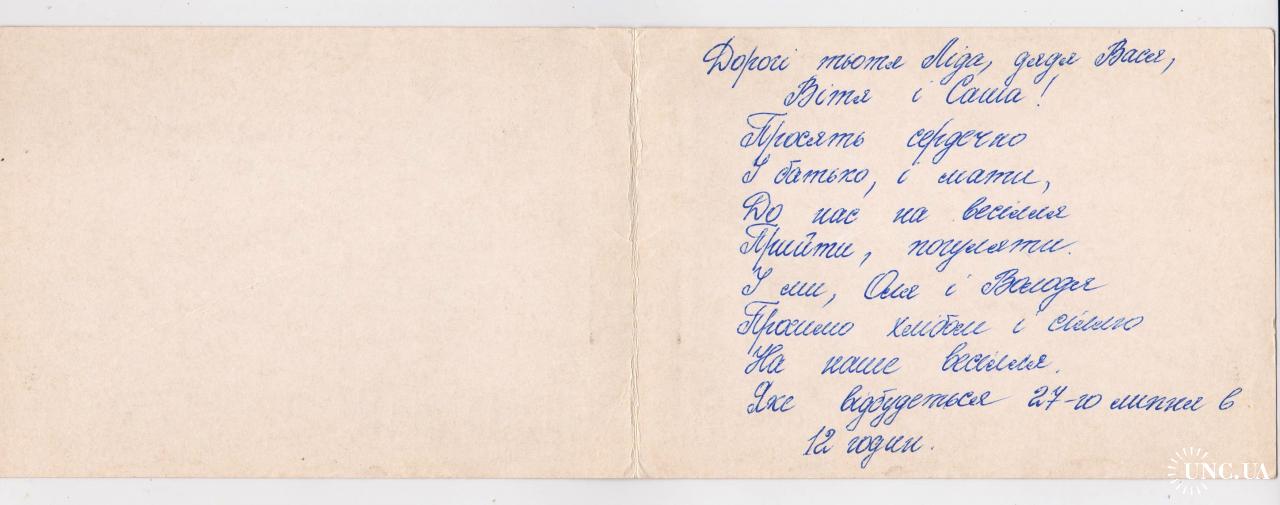 Дорогі тьотя Ліда, дядя Вася,
Вітя і Саша!
Просять сердечно
І батько, і мати,
До нас на весілля
Прийти, погуляти.
І ми, Оля і Володя
Просимо хлібом і сіллю
На наше весілля.
Яке відбудеться 27-го липня в
12 годин.
UNC.UA